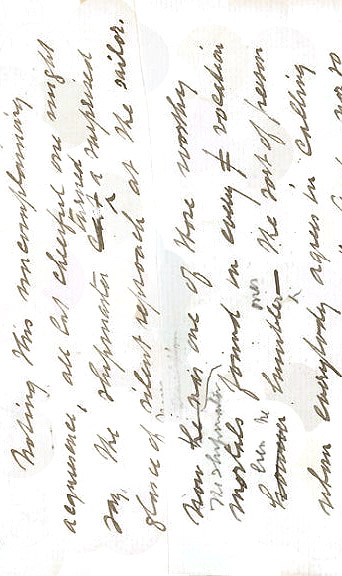 Noting this uncomplaining
acquiescence, all but cheerful one might
say, the shipmaster turned a surprised
glance of silent reproach at the sailor.
Now the Shipmaster was one of those worthy
mortals found in every vocation
even the humbler ones — the sort of person
whom everybody agrees in calling